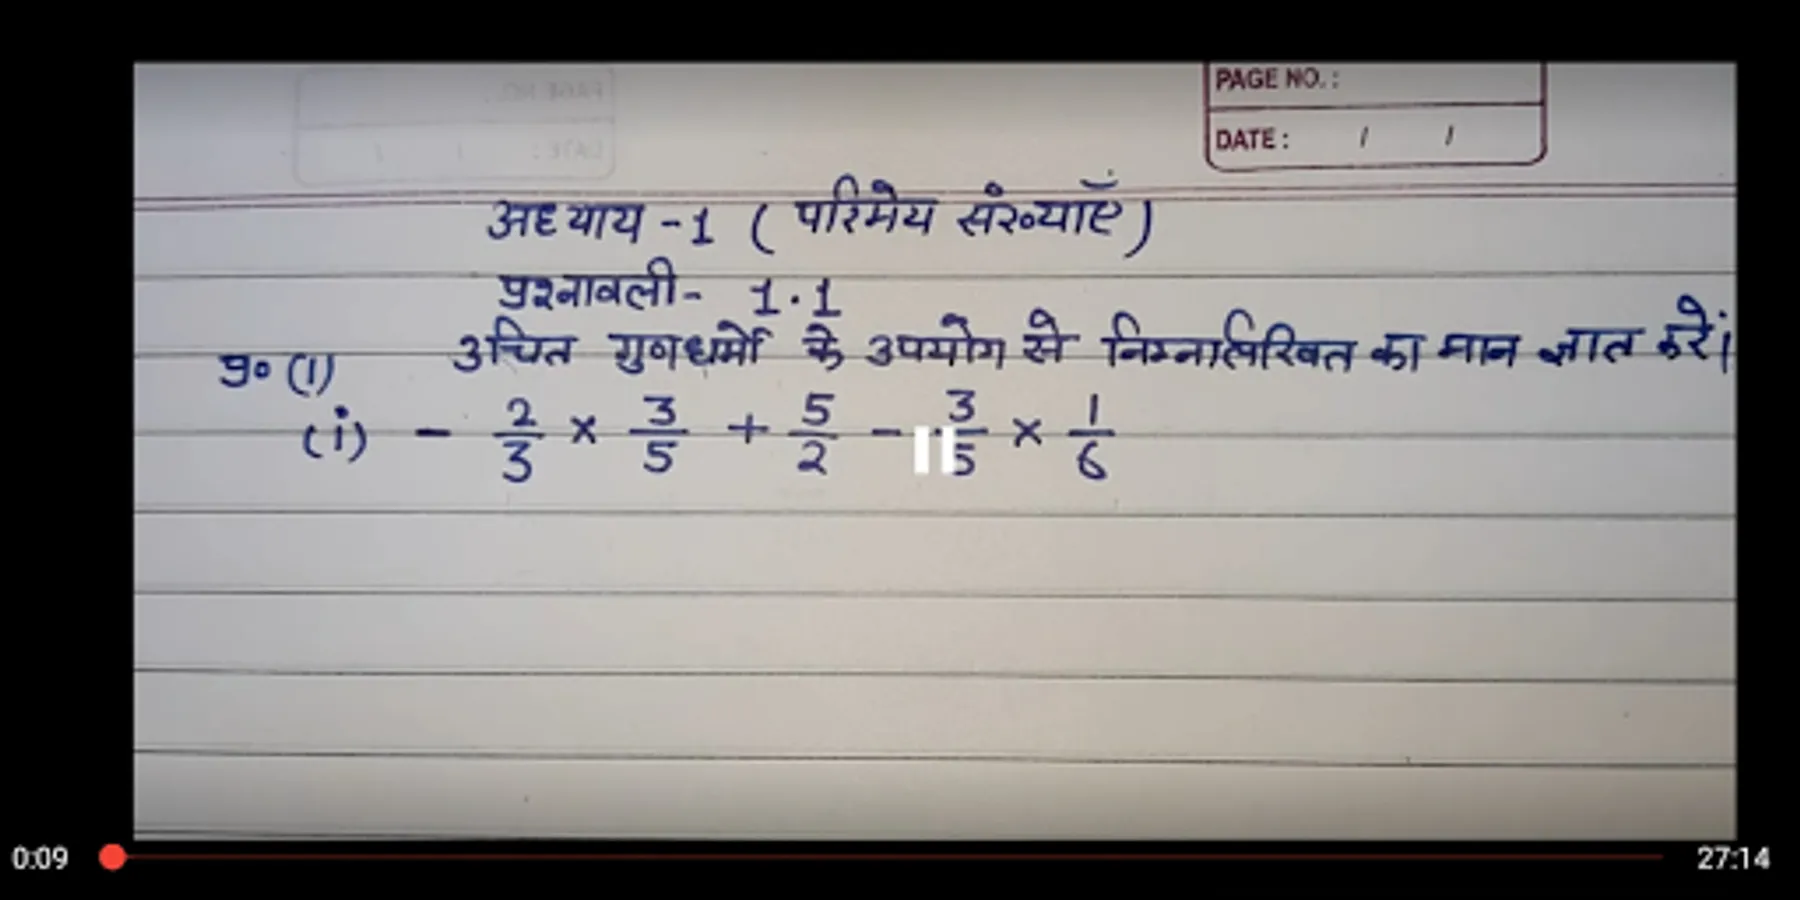 PAGE NO.:
DATE: / /
अध्याय -1 ( परिमेय संख्याएँ )
प्रश्नावली- 1.1
प्र० (1) उचित गुणधर्मो के उपयोग से निम्नलिखित का मान ज्ञात करें।
(i) - 2/3 × 3/5 + 5/2 - 3/5 × 1/6
0:09 27:14